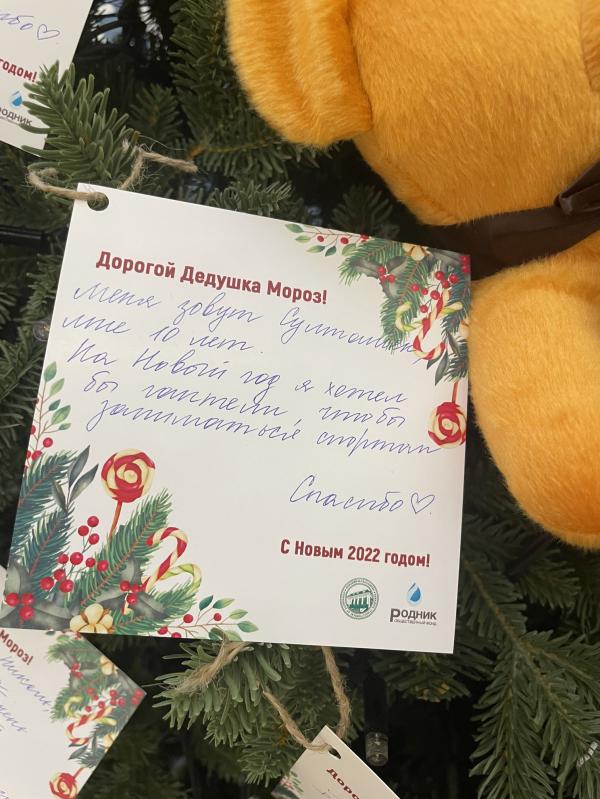 сибо♡
годом!
одник
Дорогой Дедушка Мороз!
Меня зовут Султанбек,
мне 10 лет.
На Новый год я хотел
бы гантели, чтобы
заниматься спортом
Спасибо♡.
С Новым 2022 годом!
Родник
общественный фонд
Мороз!
Доро